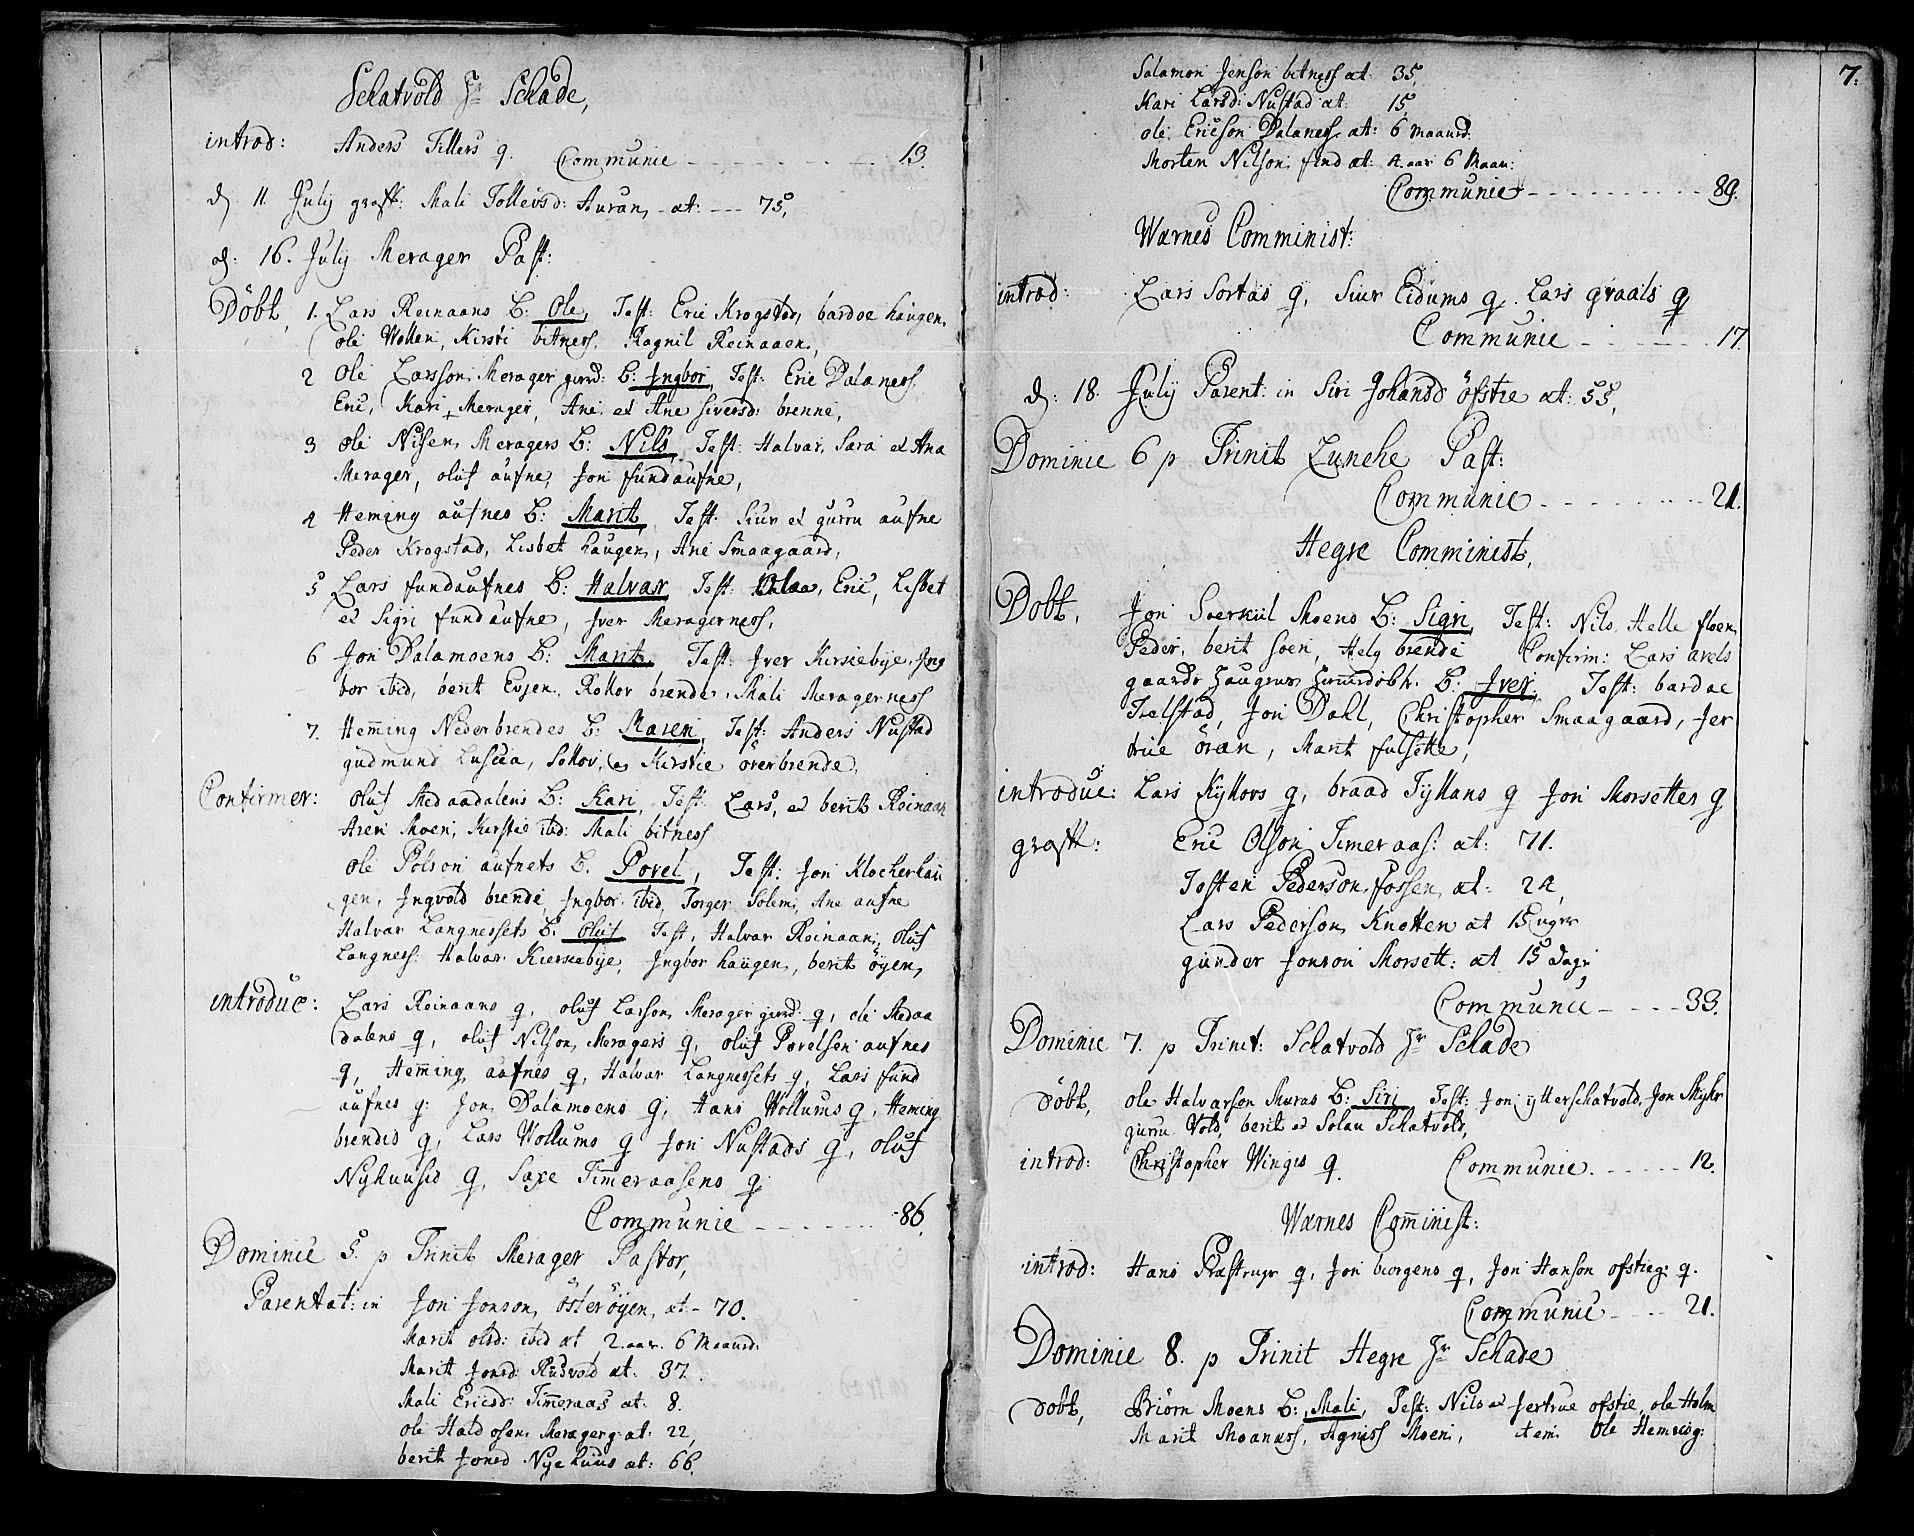 Schatvold Hr Schade,
introd: Anders Tillers q. Communic - - - - - - - - 13.
d. 11. July grafk: Mali Tollevsd: Auran, at: --- 75,
d: 16. July Merager Past:
Döbt, 1. Lars Reinaans B: Ole, Test: Eric Krogstad, bardoe haugen,
ole Wollen, Kirsti bitness. Ragnil Reinaaen,
2 Ole Larsson Merager gurd: B: Ingbor, Test: Eric Dalaness
Eric, Kari, Merager, Ane et Ane siversd: brenne,
3 Ole Nilsen Meragers B: Nils, Test: Halvar, Sara et Ana
Merager, oluf aufne, Jon fundaufne,
4 Heming aufnes B: Marit, Test: Siur et gurru aufne
Peder Krogstad, Lisbet haugen, Ane Smaagaard,
5 Lars fundaufnes B: Halvar Test: Olaa, Eric, Lisbet
et Sigri fundaufne, Iver Meragerness,
6 Jon Dalamoens B: Marit, Test: Iver Kirkebye, Ing
bor ibid, berit Evjen, Rollov brender, Mali Meragerness
7. Heming Nederbrendes B: Maren, Test: Anders Nustad
gudmund Luscia, Sollov, et Kirstie överbrende,
Confirmer: Oluf Medaadalens B: Kari, Test: Lars, et berit Reinaan
Aren Moen, Kirstie ibid: Mali bitness
Ole Polson aufnets B. Povel, Test: Jon Klockerhau
gen, Ingvold brende, Ingbor ibid, Torger Solem, Ane aufne
Halvar Langnessets B: Oluf Test, Halvar Reinaan, Oluf
Langness: Halvar Kierkebye, Ingbor haugen, berit öyen,
introduc: Lars Reinaans q, oluf Larson Merager gurd: q, ole Medaa
dalens q, oluf Nilson Meragers q, oluf Povelsen aufnes
q, Heming aufnes q, Halvar Langnessets q, Lars fund
aufnes q: Jon Dalamoens q, Hans Wollums q, Heming
brendes q, Lars Wollums q Jon Nustads q, oluf
Nyhuused q, Saxe Timeraasens q:
Communic - - - - - - 86,
Dominic 5. p Trinit Merager Pastor,
Parentat: in Jon Jonson österöyen, at - 70.
Marit olsd: ibid at 2. aar. 6 Maaurd.
Marit Jonsd Rusvold at. 37.
Mali Ericsd: Timeraas at: 8.
Ole Haldosen Meragerg: at: 22,
berit Jonsd Nyehuus at: 66.
7.
Salamon Jenson bitness at: 35,
Kari Larsd: Nustad at: 15,
ole Ericson Dalaness at: 6 Maaurd:
Morten Nilson fund at: 4. aar 6 Maan:
Communic - - - - - - - - - 89.
Wærnes Comminist:
introd: Lars Sortas q, Siur Eidums q. Lars graals q
Communic - - - - - 17.
d: 18. July Parent: in Siri Johansd öfstie at: 55,
Dominic 6 p Trinit Luncke Past:
Communic - - - - - - - 21.
Hegre Comminist,
Dobt, Jon Soerkiil Moens B: Sigri, Test: Nils, Helle floen,
Peder, berit soen, Helg brende Confirm: Lars avels
gaards Haugrus B: Iver, Test: bardoe
Trelstad, Jon Dahl, Christopher Smaagaard, Jer
true öran, Marit fulsette,
introduc: Lars Kyllovs q, braad Tyllans q Jon Morsettes q
grafk: Eric Olson Timeraas: at: 71.
Tosten Pederson fossen at: 24,
Lars Pederson Knotten at 15 uger
gunder Jonson Morsett: at 15 Dage
Communic - - - - 33.
Dominic 7. p Trinit: Schatvold Hr Schade
döbt, ole Halvarson Muras B: Siri Test: Jon ytterschatvold, Jon Mykr
gurru Vold, berit et Solau Schatvold,
introd: Christopher Winges q. Communic. - - - - - 12.
Wærnes Com̅inist:
introd: Hans Præstruge q, Jon biorgens q, Jon Hanson ofstieg: q.
Communic - - - - 21.
Dominic 8. p Trinit Hegre Hr Schade
dobt, Biörn Moens B: Mali, Test: Nils et Jertrue ofstie, ole Holm
Marit Moanæss, Agniss Moen, item Ole Hemreig: